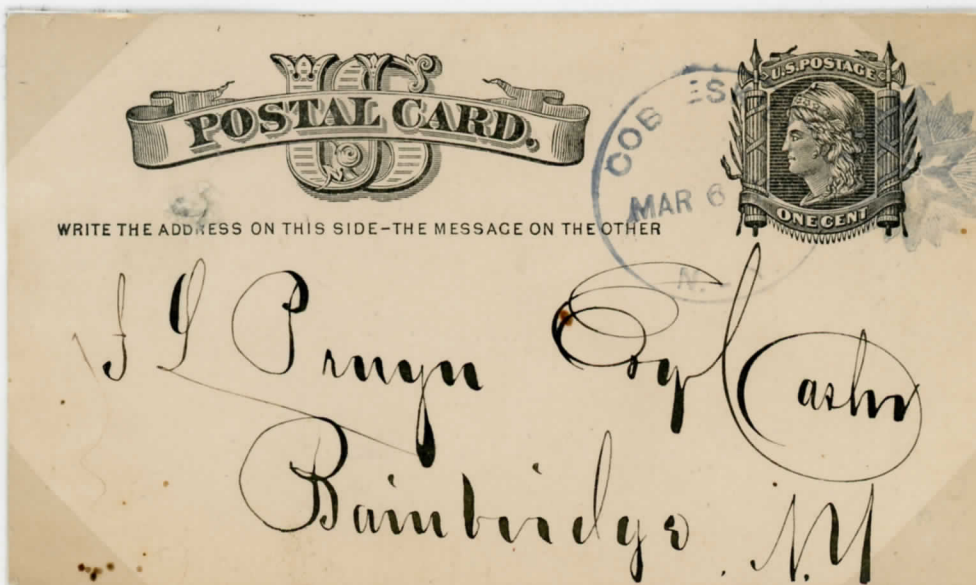 US
POSTAL CARD.
U.S. POSTAGE
ONE CENT
MAR 6
WRITE THE ADDRESS ON THIS SIDE-THE MESSAGE ON THE OTHER
Pruyn Esq Cashr
Bainbridge N.Y